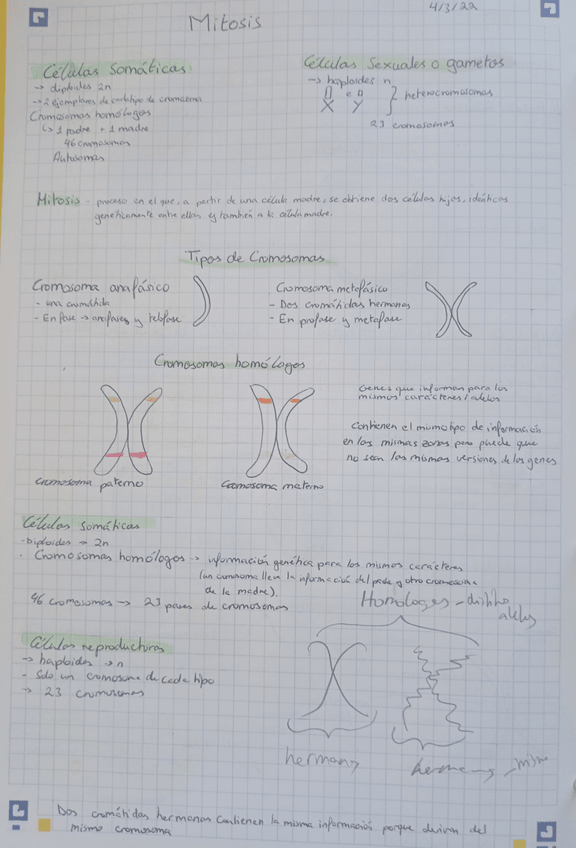 4/3/22
Mitosis
Células Somáticas
→ diploides 2n
→ 2 ejemplares de cada tipo de cromosoma
Cromosomas homólogos
↳ 1 padre + 1 madre
46 cromosomas
Autosomas
Células Sexuales o gametos
→ haploides n
X Y } heterocromosomas
23 cromosomas
Mitosis - proceso en el que, a partir de una célula madre, se obtiene dos células hijas, idénticas
genéticamente entre ellas y también a la célula madre.
Tipos de Cromosomas
Cromosoma anafásico
- una cromátida
- En fase → anafase y telofase
Cromosoma metafásico
- Dos cromátidas hermanas
- En profase y metafase
Cromosomas homólogos
Genes que informan para los
mismos caracteres / alelos
Contienen el mismo tipo de información
en las mismas zonas pero puede que
no sean las mismas versiones de los genes
Cromosoma paterno
Cromosoma materno
Células somáticas
- Diploides → 2n
· Cromosomas homólogos → información genética para los mismos caracteres
(un cromosoma lleva la información del padre y otro cromosoma
de la madre).
46 cromosomas → 23 pares de cromosomas
Homologos - distinto
alelos
Células reproductoras
→ haploides → n
- Solo un cromosoma de cada tipo
→ 23 cromosomas
hermanas
Dos cromátidas hermanas contienen la misma información porque derivan del
mismo cromosoma